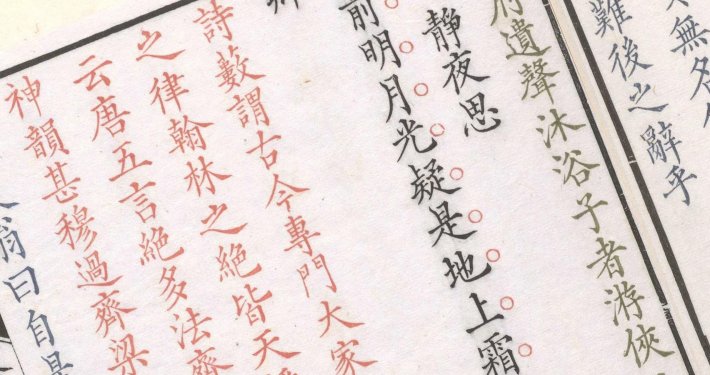 無名
難後之辭乎
遺聲沐浴子者游俠
靜夜思
前明月光疑是地上霜
詩藪謂古今專門大家
之律翰林之絕皆天
云唐五言絕多法齊
神韻甚穆過齊梁
翁曰自是